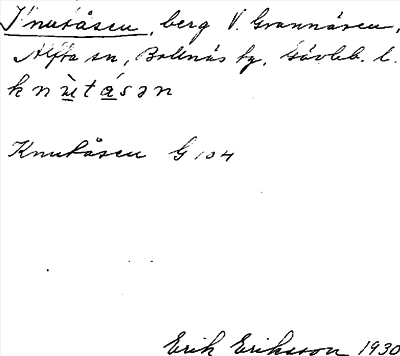 Knutåsen, berg V. Grannåsen,
Alfta sn, Bollnäs tg, Gävleb. l.
knùtásən
Knutåsen G 104
Erik Eriksson 1930